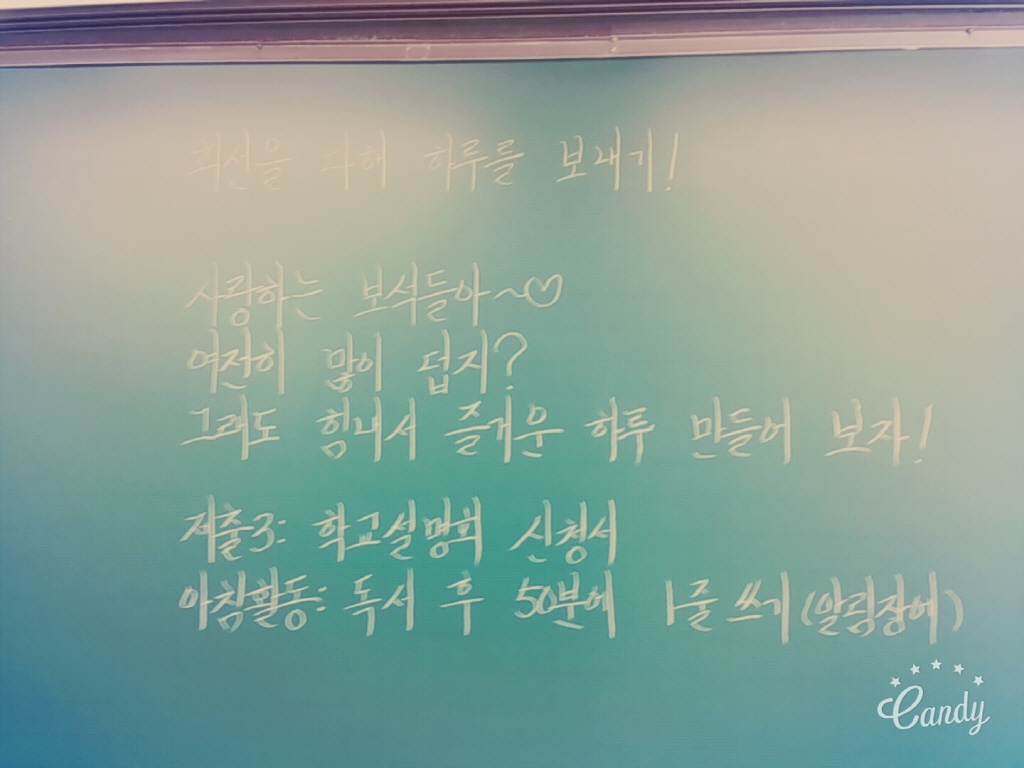 최선을 다해 하루를 보내기!
사랑하는 보석들아~♡
여전히 많이 덥지?
그래도 힘내서 즐거운 하루 만들어 보자!
제출3: 학교설명회 신청서
아침활동: 독서 후 50분에 1줄 쓰기(알림장에)
Candy